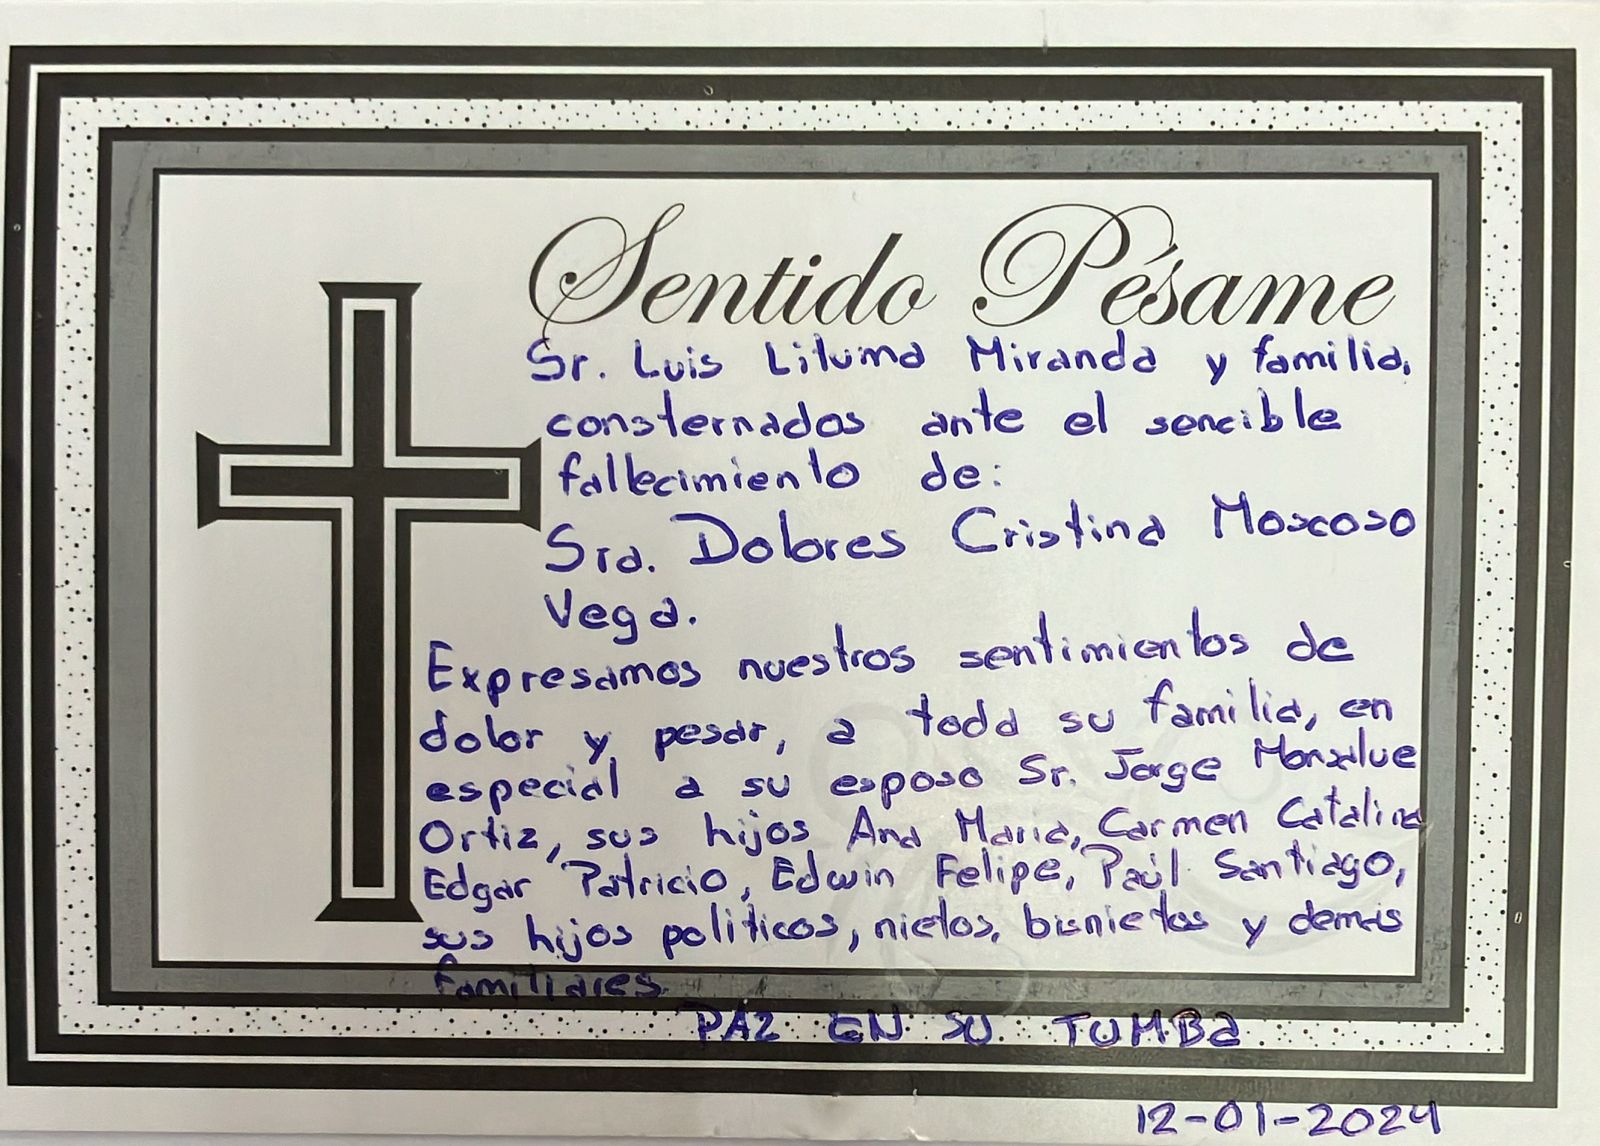 Sentido Pésame
Sr. Luis Lituma Miranda y familia,
consternados ante el sencible
fallecimiento de:
Sra. Dolores Cristina Moscoso
Vega.
Expresamos nuestros sentimientos de
dolor y pesar, a toda su familia, en
especial a su esposo Sr. Jorge Monsalue
Ortiz, sus hijos Ana Maria, Carmen Catalina
Edgar Patricio, Edwin Felipe, Paúl Santiago,
sus hijos politicos, nietos, bisnietos y demás
familiares.
PAZ EN SU TUMBa
12-01-2024